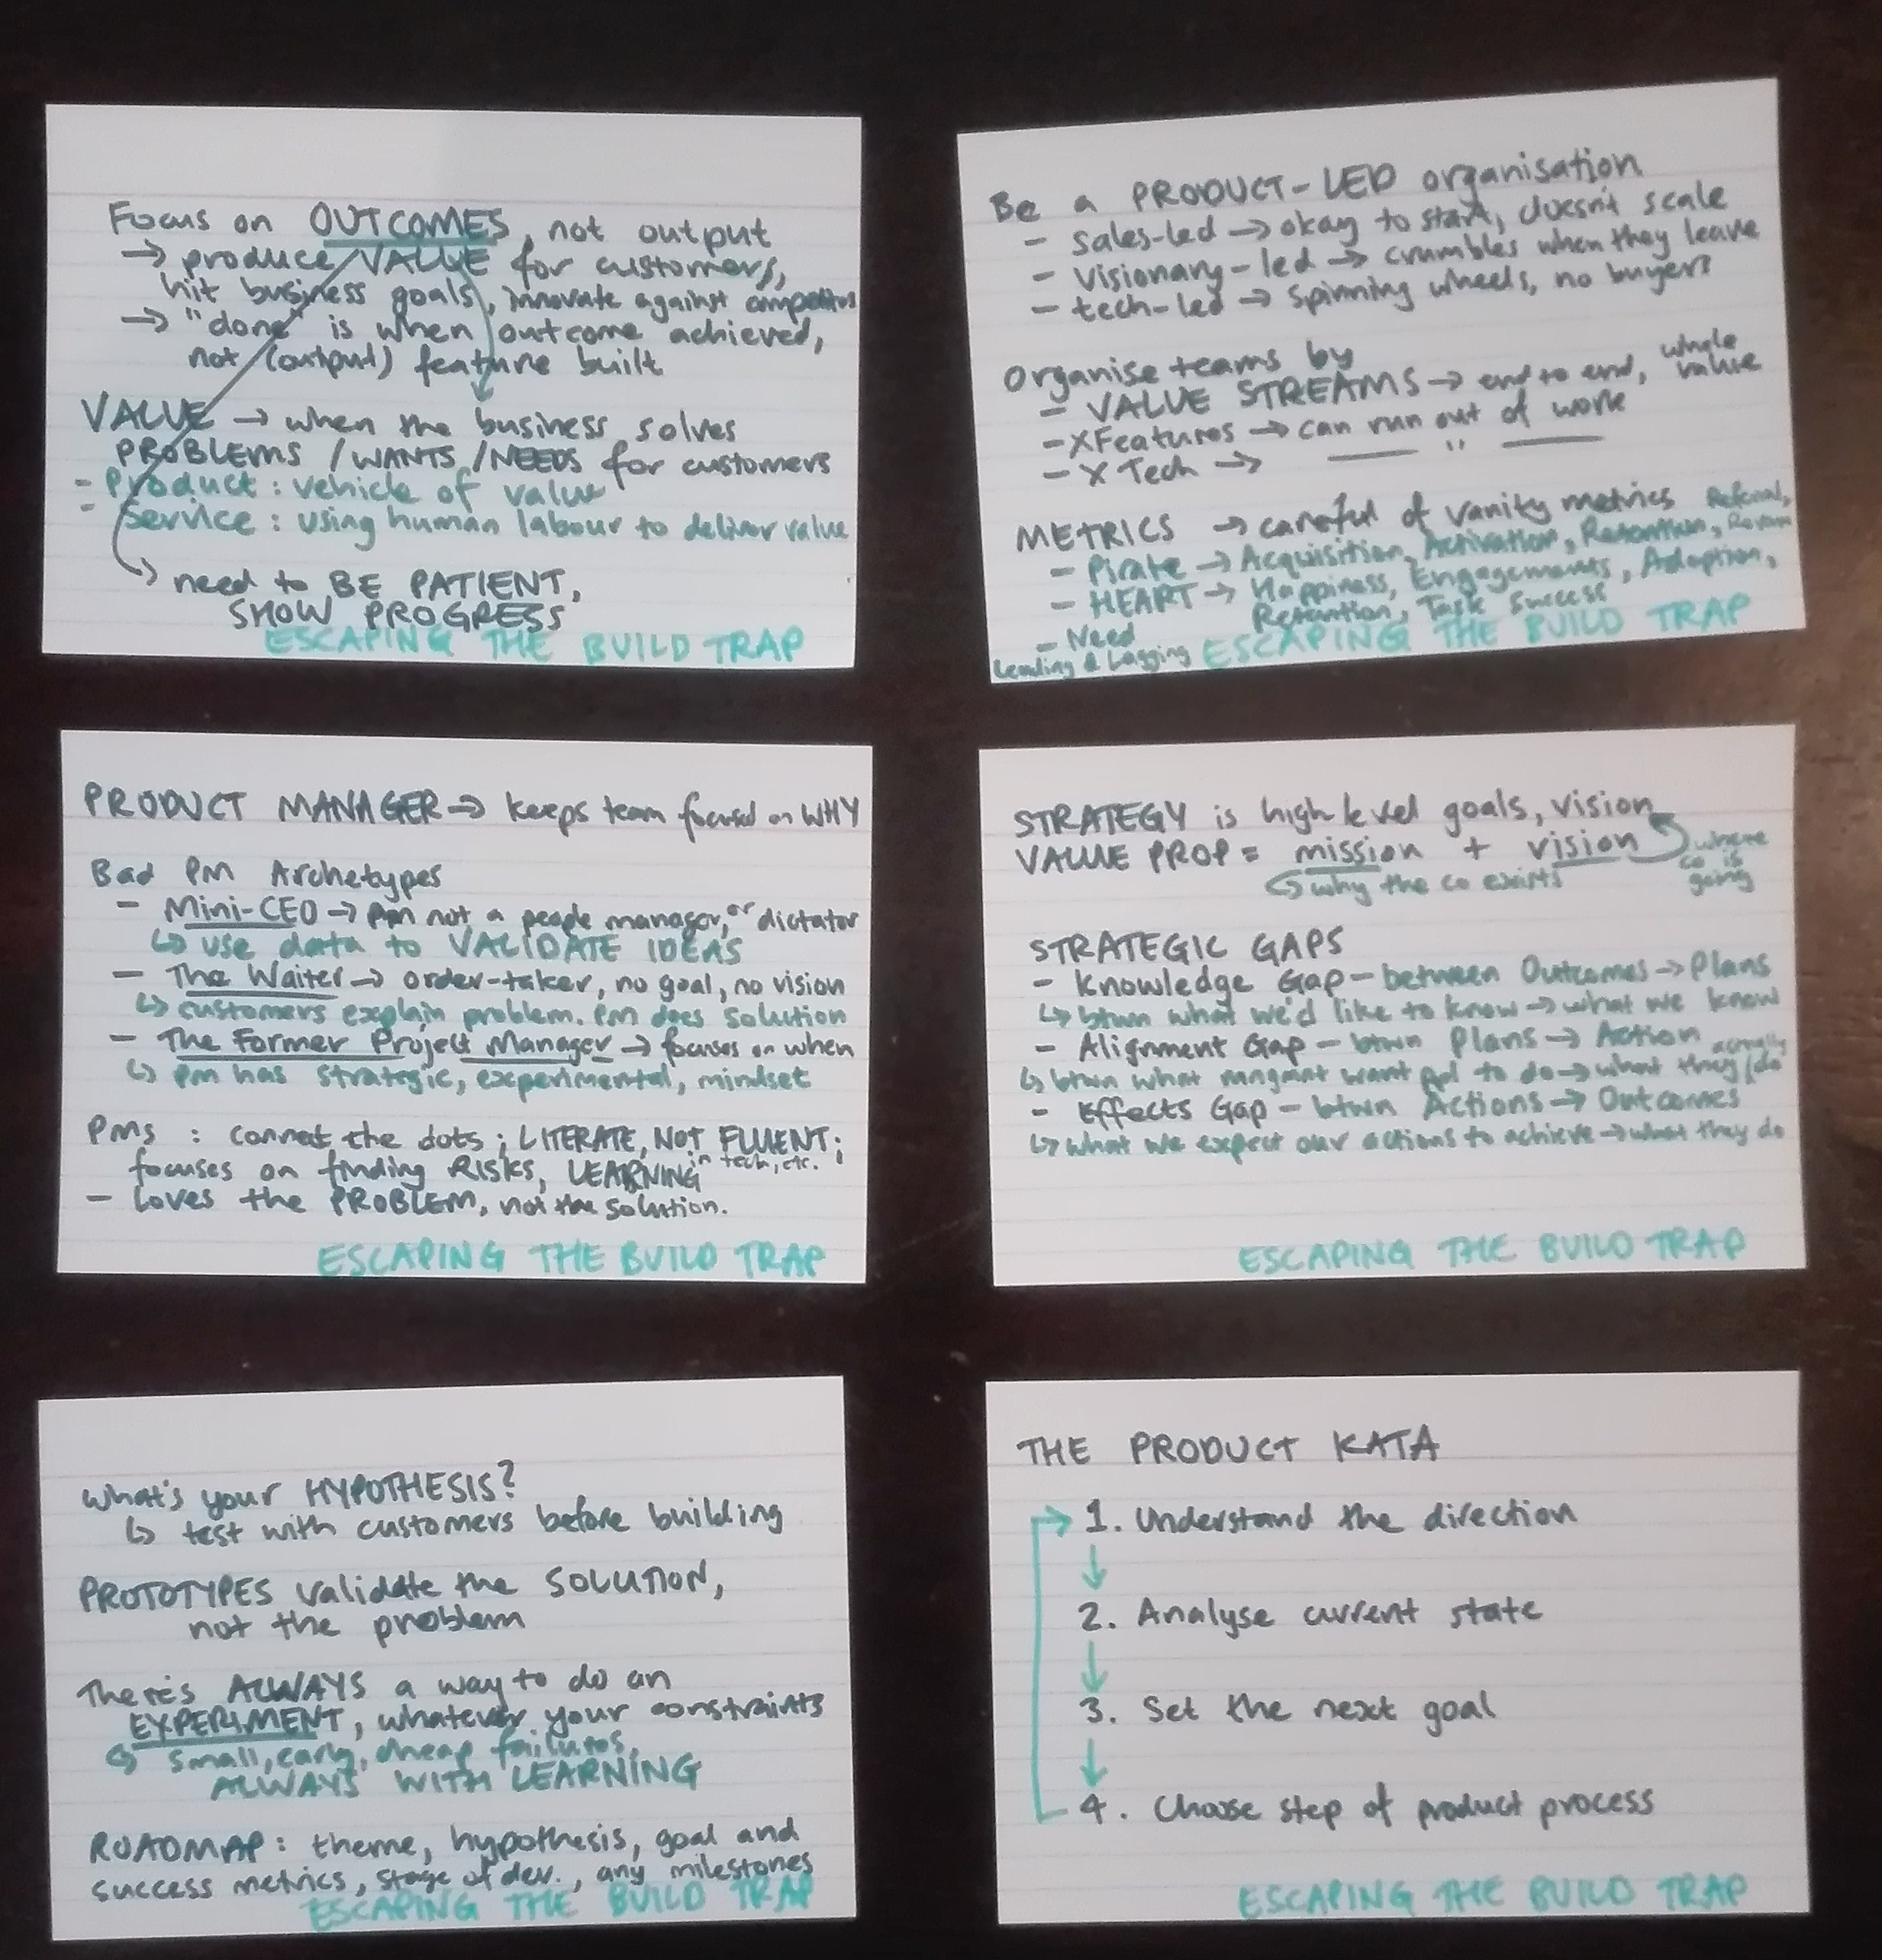 Focus on OUTCOMES, not output
→ produce VALUE for customers,
hit business goals, innovate against competitors
→ "done" is when outcome achieved,
not (output) feature built
VALUE → when the business solves
PROBLEMS / WANTS / NEEDS for customers
- Product : vehicle of value
- Service : using human labour to deliver value
↳ need to BE PATIENT,
SHOW PROGRESS
ESCAPING THE BUILD TRAP
Be a PRODUCT-LED organisation
- sales-led → okay to start, doesn't scale
- Visionary-led → crumbles when they leave
- tech-led → spinning wheels, no buyers
Organise teams by
- VALUE STREAMS → end to end, whole value
- X Features → can run out of work
- X Tech → —— " ——
METRICS → careful of vanity metrics
- Pirate → Acquisition, Activation, Retention, Referral, Revenue
- HEART → Happiness, Engagements, Adoption,
Retention, Task Success
- Need
Leading & Lagging
ESCAPING THE BUILD TRAP
PRODUCT MANAGER → keeps team focused on WHY
Bad PM Archetypes
- Mini-CEO → PM not a people manager, or dictator
↳ use data to VALIDATE IDEAS
- The Waiter → order-taker, no goal, no vision
↳ customers explain problem. PM does solution
- The Former Project Manager → focuses on when
↳ PM has strategic, experimental, mindset
PMs : connect the dots ; LITERATE, NOT FLUENT in tech, etc. ;
focuses on finding RISKS, LEARNING
- Loves the PROBLEM, not the solution.
ESCAPING THE BUILD TRAP
STRATEGY is high level goals, vision
VALUE PROP = mission + vision
↳ why the co exists
where co is going
STRATEGIC GAPS
- Knowledge Gap - between Outcomes → Plans
↳ btwn what we'd like to know → what we know
- Alignment Gap - btwn Plans → Action
↳ btwn what mngmnt want ppl to do → what they actually do
- Effects Gap - btwn Actions → Outcomes
↳ what we expect our actions to achieve → what they do
ESCAPING THE BUILD TRAP
What's your HYPOTHESIS?
↳ test with customers before building
PROTOTYPES validate the SOLUTION,
not the problem
There's ALWAYS a way to do an
EXPERIMENT, whatever your constraints
↳ small, early, cheap failures,
ALWAYS WITH LEARNING
ROADMAP : theme, hypothesis, goal and
success metrics, stage of dev., any milestones
ESCAPING THE BUILD TRAP
THE PRODUCT KATA
→ 1. Understand the direction
↓
2. Analyse current state
↓
3. Set the next goal
↓
4. Choose step of product process
ESCAPING THE BUILD TRAP